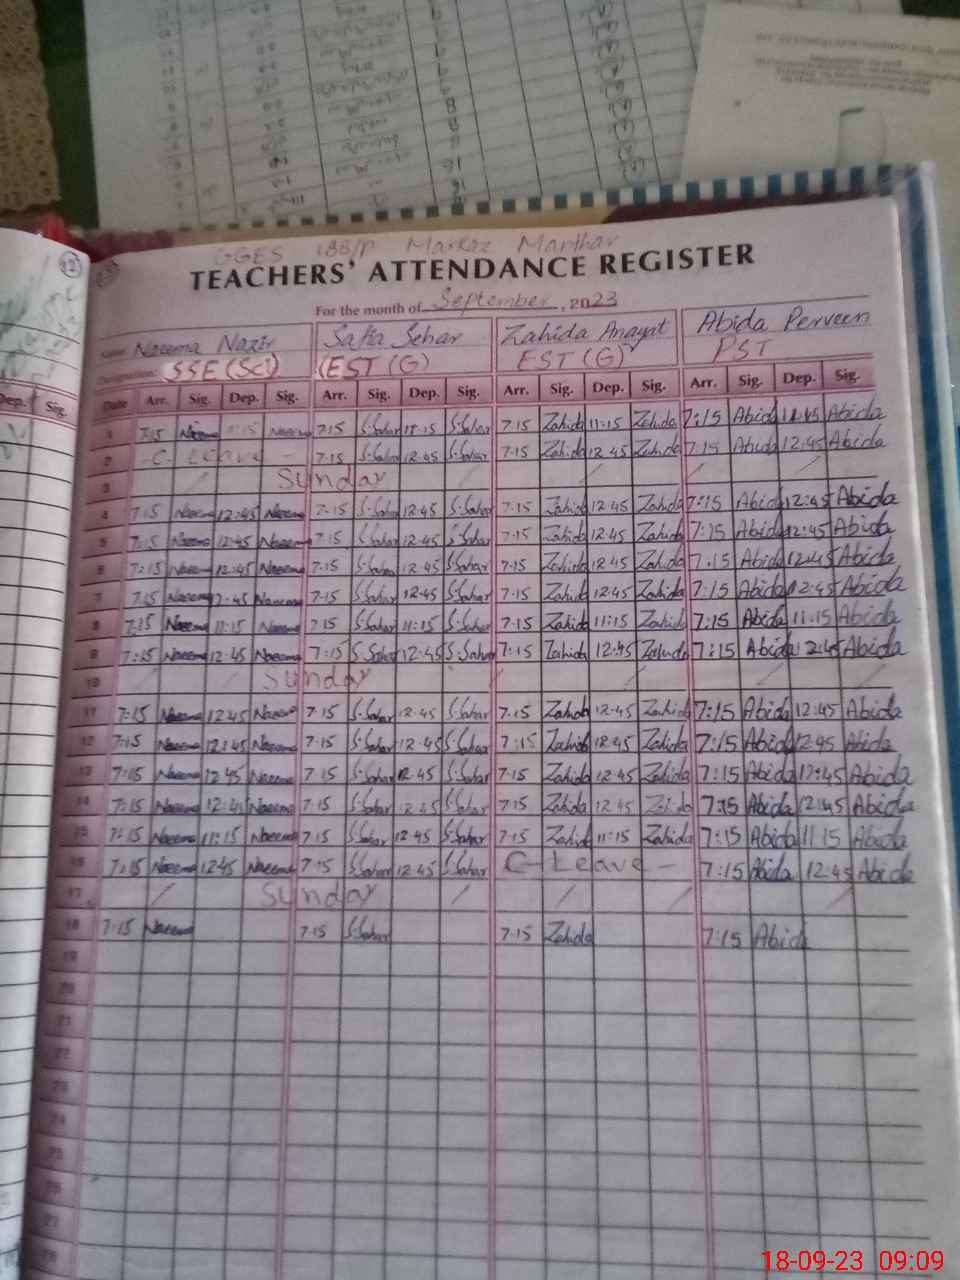 GGES 188/P Markaz Manthar
TEACHERS' ATTENDANCE REGISTER
For the month of September, 2023
Name: Naeema Nazir Safia Sehar Zahida Anayat Abida Perveen
Designation: SSE (Sci) EST (G) EST (G) PST
Dep. Sig.
Date Arr. Sig. Dep. Sig. Arr. Sig. Dep. Sig. Arr. Sig. Dep. Sig. Arr. Sig. Dep. Sig.
1 7:15 Naeema 11:15 Naeema 7.15 S.Sahar 11.15 S.Sahar 7.15 Zahida 11:15 Zahida 7:15 Abida Abida
2 C. Leave - 7.15 S.Sahar 12.45 S.Sahar 7.15 Zahida 12.45 Zahida 7:15 Abida 12:45 Abida
3 Sunday
4 7:15 Naeema 12:45 Naeema 7.15 S.Sahar 12.45 S.Sahar 7.15 Zahida 12.45 Zahida 7:15 Abida 12:45 Abida
5 7:15 Naeema 12:45 Naeema 7.15 S.Sahar 12.45 S.Sahar 7.15 Zahida 12.45 Zahida 7:15 Abida 12:45 Abida
6 7:15 Naeema 12:45 Naeema 7.15 S.Sahar 12.45 S.Sahar 7.15 Zahida 12.45 Zahida 7.15 Abida 12:45 Abida
7 7.15 Naeema 12:45 Naeema 7.15 S.Sahar 12.45 S.Sahar 7.15 Zahida 12.45 Zahida 7:15 Abida 12:45 Abida
8 7:15 Naeema 11:15 Naeema 7.15 S.Sahar 11:15 S.Sahar 7.15 Zahida 11:15 Zahida 7:15 Abida 11:15 Abida
9 7:15 Naeema 12:45 Naeema 7:15 S.Sahar 12:45 S.Sahar 7:15 Zahida 12:45 Zahida 7:15 Abida 12:45 Abida
10 Sunday
11 7:15 Naeema 12:45 Naeema 7.15 S.Sahar 12.45 S.Sahar 7.15 Zahida 12.45 Zahida 7:15 Abida 12:45 Abida
12 7:15 Naeema 12:45 Naeema 7.15 S.Sahar 12.45 S.Sahar 7:15 Zahida 12.45 Zahida 7:15 Abida 12:45 Abida
13 7:15 Naeema 12:45 Naeema 7.15 S.Sahar 12.45 S.Sahar 7.15 Zahida 12.45 Zahida 7:15 Abida 12:45 Abida
14 7:15 Naeema 12:45 Naeema 7.15 S.Sahar 12.45 S.Sahar 7.15 Zahida 12.45 Zahida 7:15 Abida 12:45 Abida
15 7:15 Naeema 11:15 Naeema 7.15 S.Sahar 12.45 S.Sahar 7.15 Zahida 11:15 Zahida 7:15 Abida 11:15 Abida
16 7:15 Naeema 12:45 Naeema 7.15 S.Sahar 12.45 S.Sahar C-Leave - 7:15 Abida 12:45 Abida
17 Sunday
18 7:15 Naeema 7.15 S.Sahar 7.15 Zahida 7:15 Abida
19
20
21
22
23
24
25
26
27
28
18-09-23 09:09